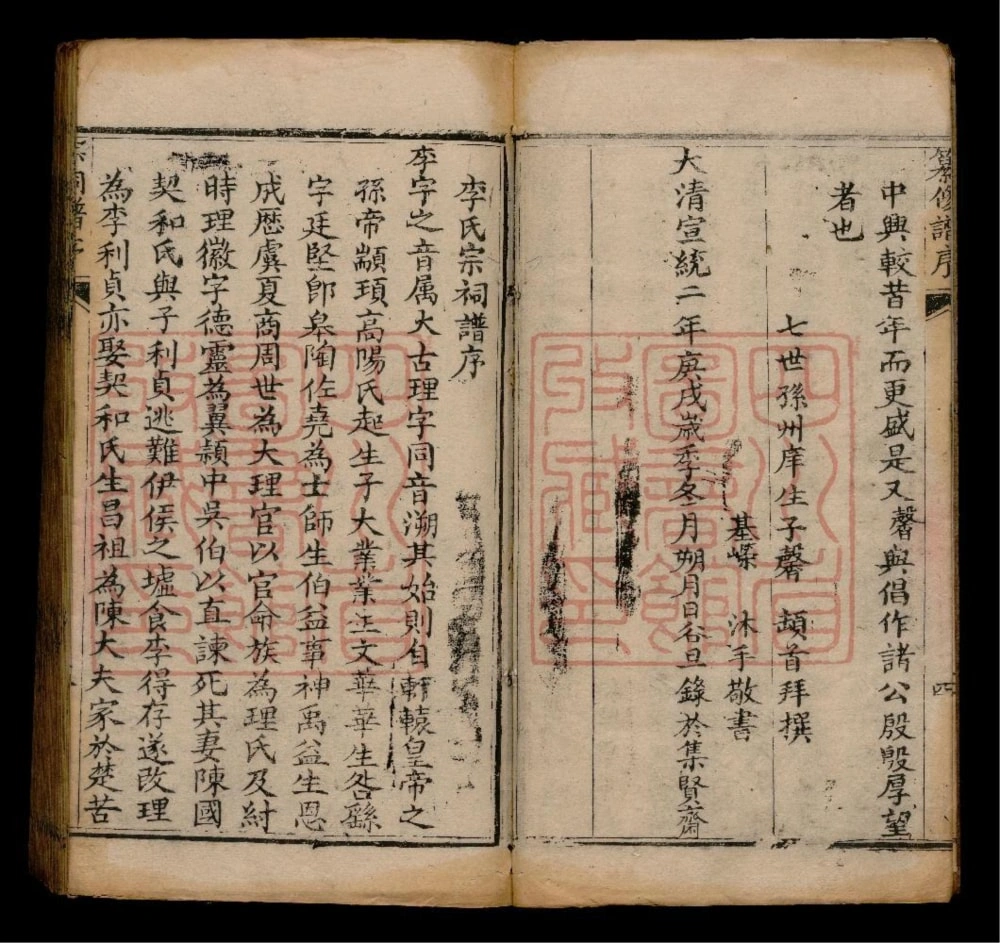 纂修譜序
四
中興較昔年而更盛是又馨與倡作諸公殷殷厚望
者也
七世孫州庠生子馨 頓首拜撰
基嶸 沐手敬書
大清宣統二年庚戌歲季冬月朔月日谷旦錄於集賢齋
李氏宗祠譜序
李字之音属大古理字同音溯其始則自軒轅皇帝之
孫帝顓頊高陽氏起生子大業業生文華華生咎繇
字廷堅卽皋陶佐堯為士師生伯益事神禹益生恩
成歷虞夏商周世為大理官以官命族為理氏及紂
時理徽字德靈為翼穎中吳伯以直諫死其妻陳國
契和氏與子利貞逃難伊侯之墟食李得存遂改理
為李利貞亦娶契和氏生昌祖為陳大夫家於楚苦
宗祠譜序